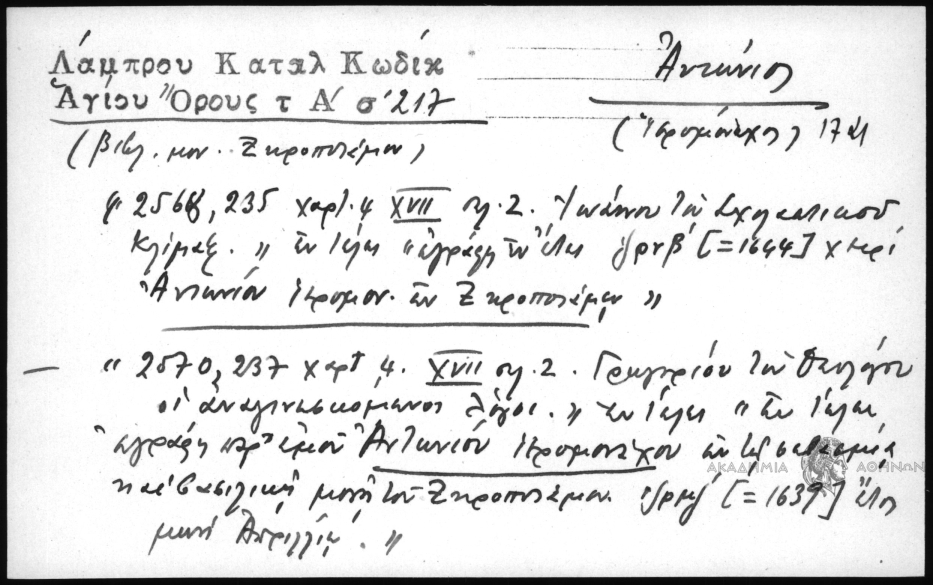 Λάμπρου Καταλ Κωδίκ
Ἁγίου Ὄρους τ Α΄ σ 217
(βιβλ. μον. Ξηροποτάμου)
Ἀντώνιος
(ἱερομόναχος) 17
2568, 235 χαρτ. 4 XVII σχ. 2. Ἰωάννου τοῦ Σχολαστικοῦ
Κλίμαξ. " ἐν τέλει "ἐγράφη ἐν ἔτει ζρνβ΄ [=1644] χειρὶ
Ἀντωνίου ἱερομον. ἐν Ξηροποτάμῳ "
" 2570, 237 χαρτ 4. XVII σχ. 2. Γρηγορίου τοῦ Θεολόγου
οἱ ἀναγινωσκόμενοι λόγοι. " ἐν τέλει "
ἐγράφη παρ' ἐμοῦ Ἀντωνίου ἱερομονάχου ἐν τῇ σεβασμίᾳ
καὶ βασιλικῇ μονῇ τοῦ Ξηροποτάμου ζρμζ΄ [=1639] ἔτος
μηνὶ Ἀπριλλίῳ. "
ΑΚΑΔΗΜΙΑ ΑΘΗΝΩΝ